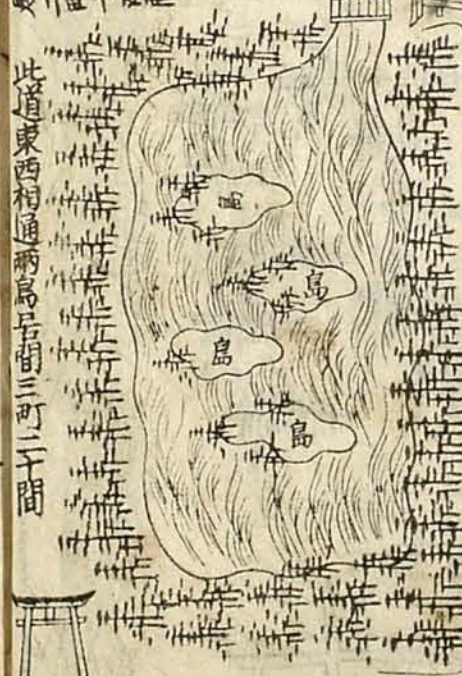 此道東西相通両鳥居間三町二十間
島
島
島
島